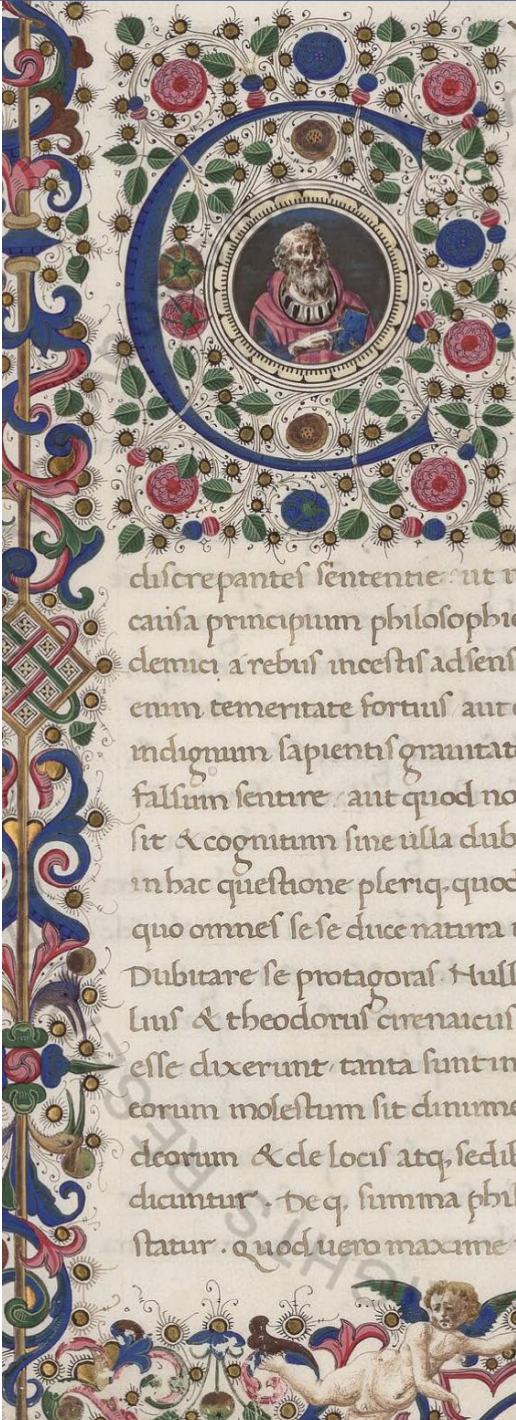 C
discrepantes sententie ut
causa principium philosophi
demici a rebus incertis adsens
enim temeritate fortius aut
indignum sapientis grauitat
falsum sentire. aut quod no
sit & cognitum sine ulla dub
in hac questione pleriq. quod
quo omnes se se duce natura
Dubitare se protagoras Null
lius & theodorus cirenaicus
esse dixerunt. tanta sunt in
eorum molestum sit dinume
deorum & de locis atq. sedib
dicuntur. De q. summa phil
statur. Quod uero maxime